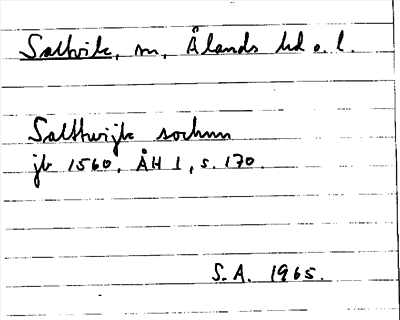 Saltvik, sn, Ålands hd o. l.
Salttwijk sochnn
jb 1560, ÅH 1, s. 170.
S.A. 1965.